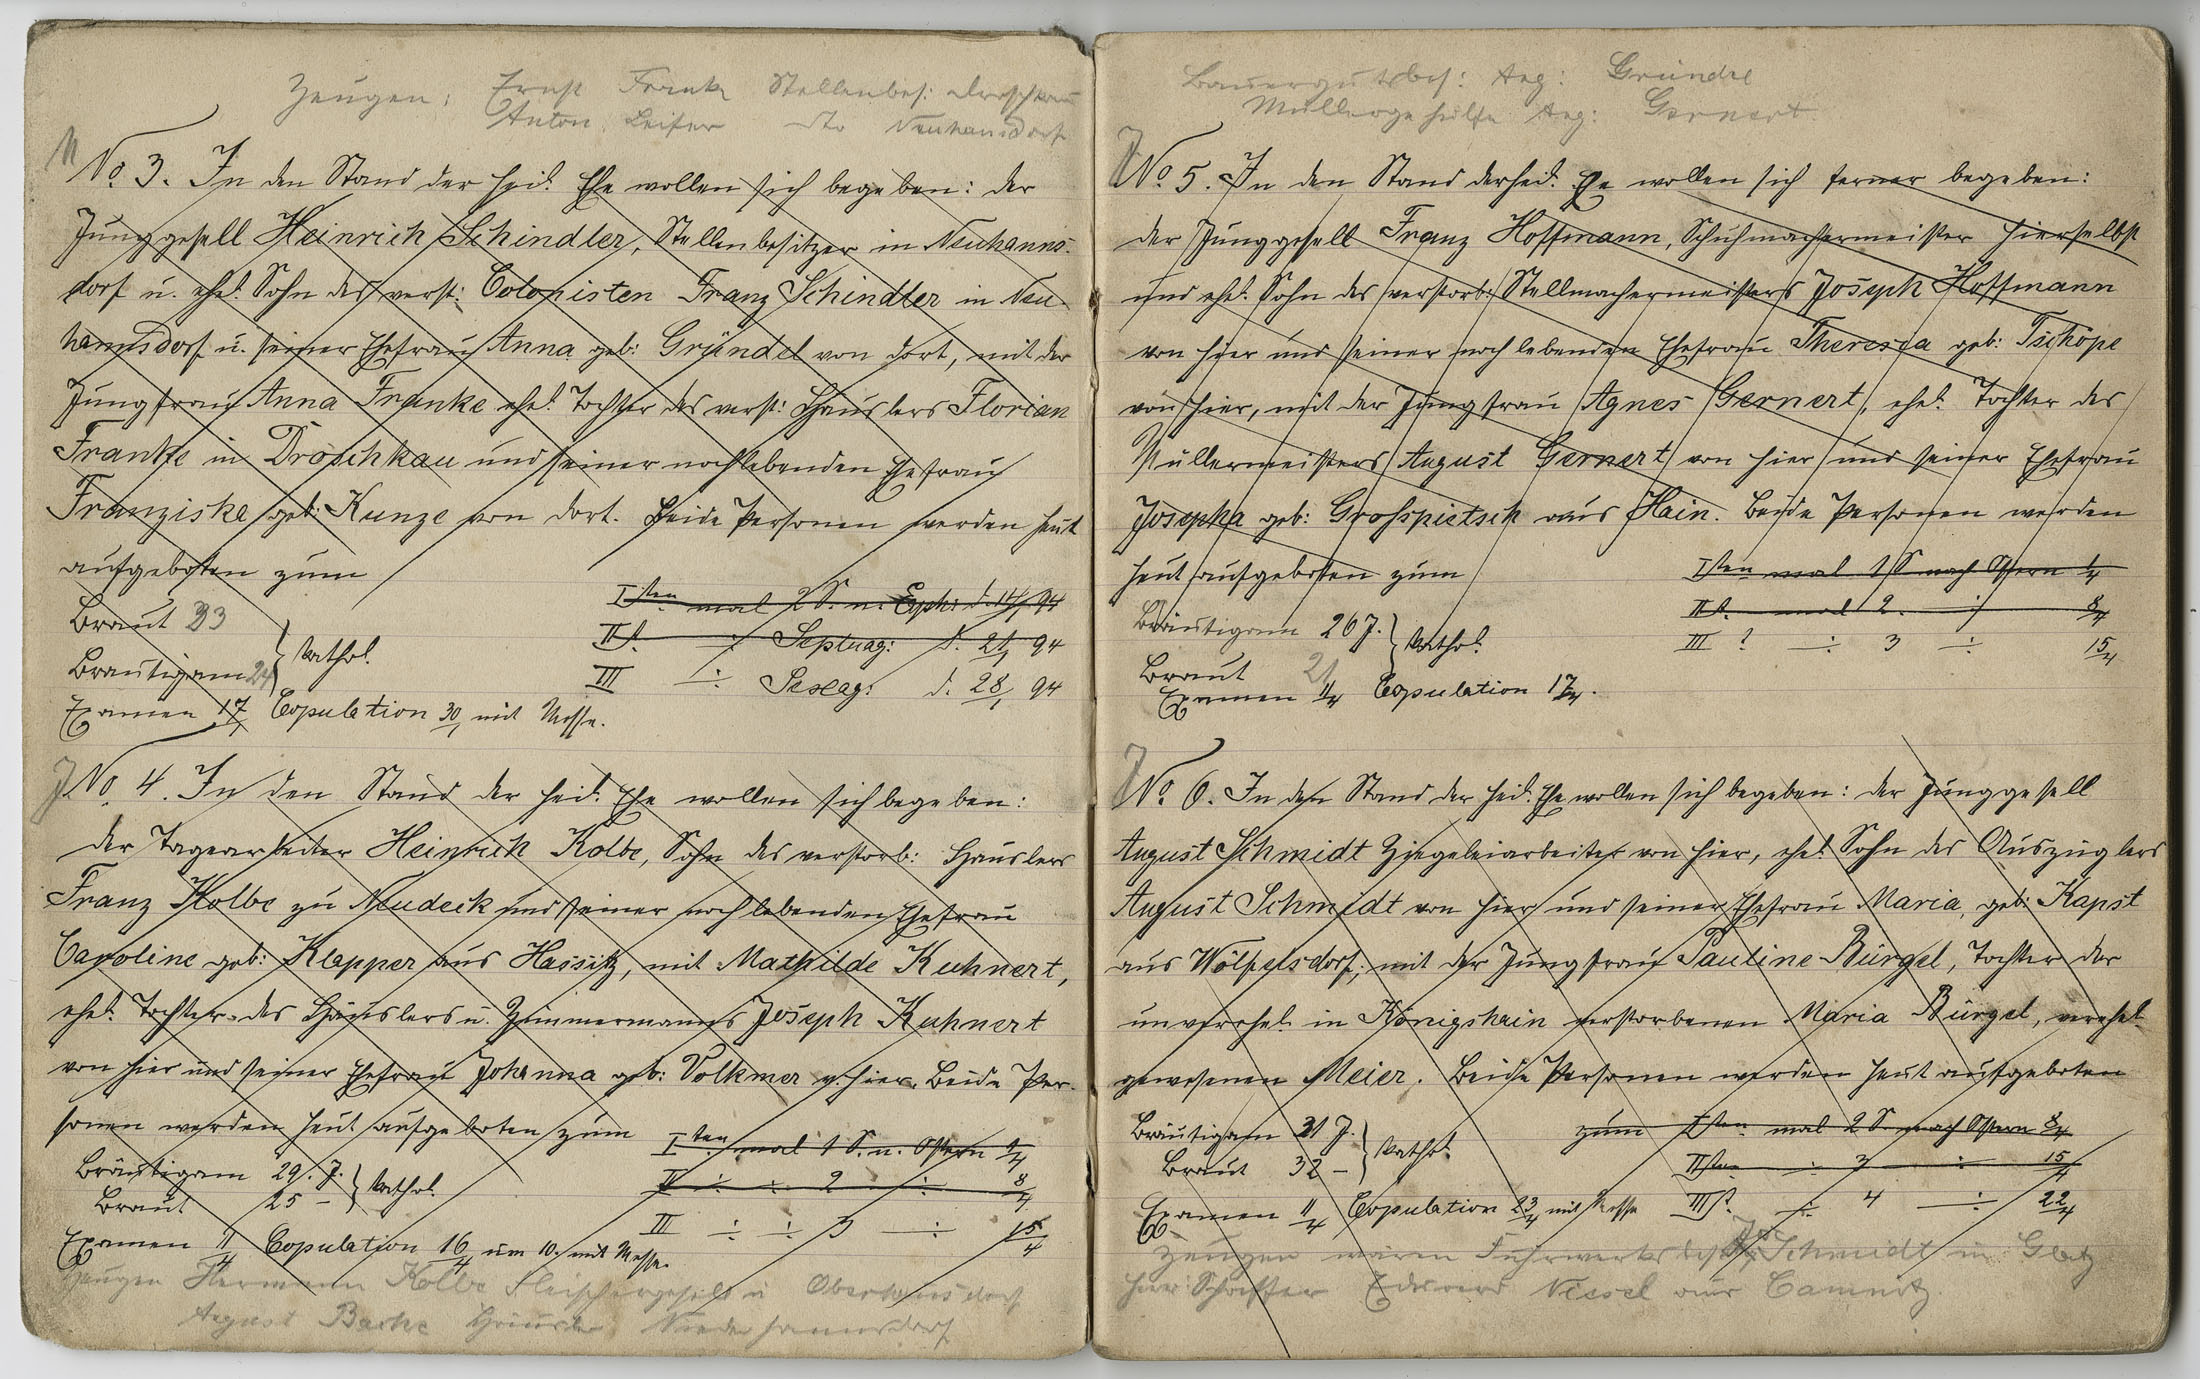 Zeugen: Ernst Franke Stellenbes: Droschkau
Anton Leiser dto Neuhansdorf
No. 3. In den Stand der heil. Ehe wollen sich begeben: der
Junggesell Heinrich Schindler, Stellenbesitzer in Neuhanns-
dorf u. ehel. Sohn des verst: Colonisten Franz Schindler in Neu-
hannsdorf u. seiner Ehefrau Anna geb: Gründel von dort, mit der
Jungfrau Anna Franke ehel. Tochter des verst: Häuslers Florian
Franke in Droschkau und seiner nochlebenden Ehefrau
Franziska geb: Kunze von dort. Beide Personen werden heut
aufgeboten zum
Iten mal 2 S. n. Eph: d. 14/1 94
Braut 23
IIt. ÷ Septuag: d. 21/1 94
Bräutigam 24 } kathol.
III ÷ Sexag: d. 28/1 94
Examen 17/1 Copulation 30/1 mit Messe.
No. 4. In den Stand der heil. Ehe wollen sich begeben:
der Tagearbeiter Heinrich Kolbe, Sohn des verstorb: Häuslers
Franz Kolbe zu Neudeck und seiner noch lebenden Ehefrau
Caroline geb: Klapper aus Hassitz, mit Mathilde Kuhnert,
ehel. Tochter des Häuslers u. Zimmermanns Joseph Kuhnert
von hier und seiner Ehefrau Johanna geb: Volkmer v. hier. Beide Per-
sonen werden heut aufgeboten zum
Iten mal 1 S. n. Ostern 1/4
Bräutigam 29. J.
Braut 25 – } kathol.
II ÷ ÷ 2 ÷ 8/4
III ÷ ÷ 3 ÷ 15/4
Examen 11/4 Copulation 16/4 um 10. mit Messe.
Zeugen Hermann Kolbe Fleischergeselle in Oberhansdorf
August Häusler Niederhannsdorf
Bauergutsbes: Aug: Gründel
Müllergehülfe Aug: Gernert
No. 5. In den Stand der heil. Ehe wollen sich ferner begeben:
der Junggesell Franz Hoffmann, Schuhmachermeister hierselbst
und ehel. Sohn des verstorb: Stellmachermeisters Joseph Hoffmann
von hier und seiner noch lebenden Ehefrau Theresia geb: Tschöpe
von hier, mit der Jungfrau Agnes Gernert, ehel. Tochter des
Müllermeisters August Gernert von hier und seiner Ehefrau
Josepha geb: Großpietsch aus Hain. Beide Personen werden
heut aufgeboten zum
Iten mal 1 S nach Ostern 1/4
IIt. mal 2. ÷ 8/4
Bräutigam 26 J. } kathol.
III t ÷ 3 ÷ 15/4
Braut 21
Examen 11/4 Copulation 17/4.
No. 6. In den Stand der heil. Ehe wollen sich begeben: der Junggesell
August Schmidt Ziegeleiarbeiter von hier, ehel. Sohn des Auszüglers
August Schmidt von hier und seiner Ehefrau Maria, geb: Kapst
aus Wölfelsdorf; mit der Jungfrau Pauline Bürgel, Tochter der
unverehel. in Königshain verstorbenen Maria Bürgel, verehel.
gewesenen Meier. Beide Personen werden heut aufgeboten
zum Iten mal 2 S. nach Ostern 8/4
Bräutigam 31 J.
Braut 32 – } kathol.
IIten ÷ 3 ÷ 15/4
IIIt. ÷ 4 ÷ 22/4
Examen 11/4 Copulation 23/4 mit Messe
Zeugen waren Fuhrwerksbes: Schmidt in Glatz
Schaffer Eduard Niesel aus Camnitz.